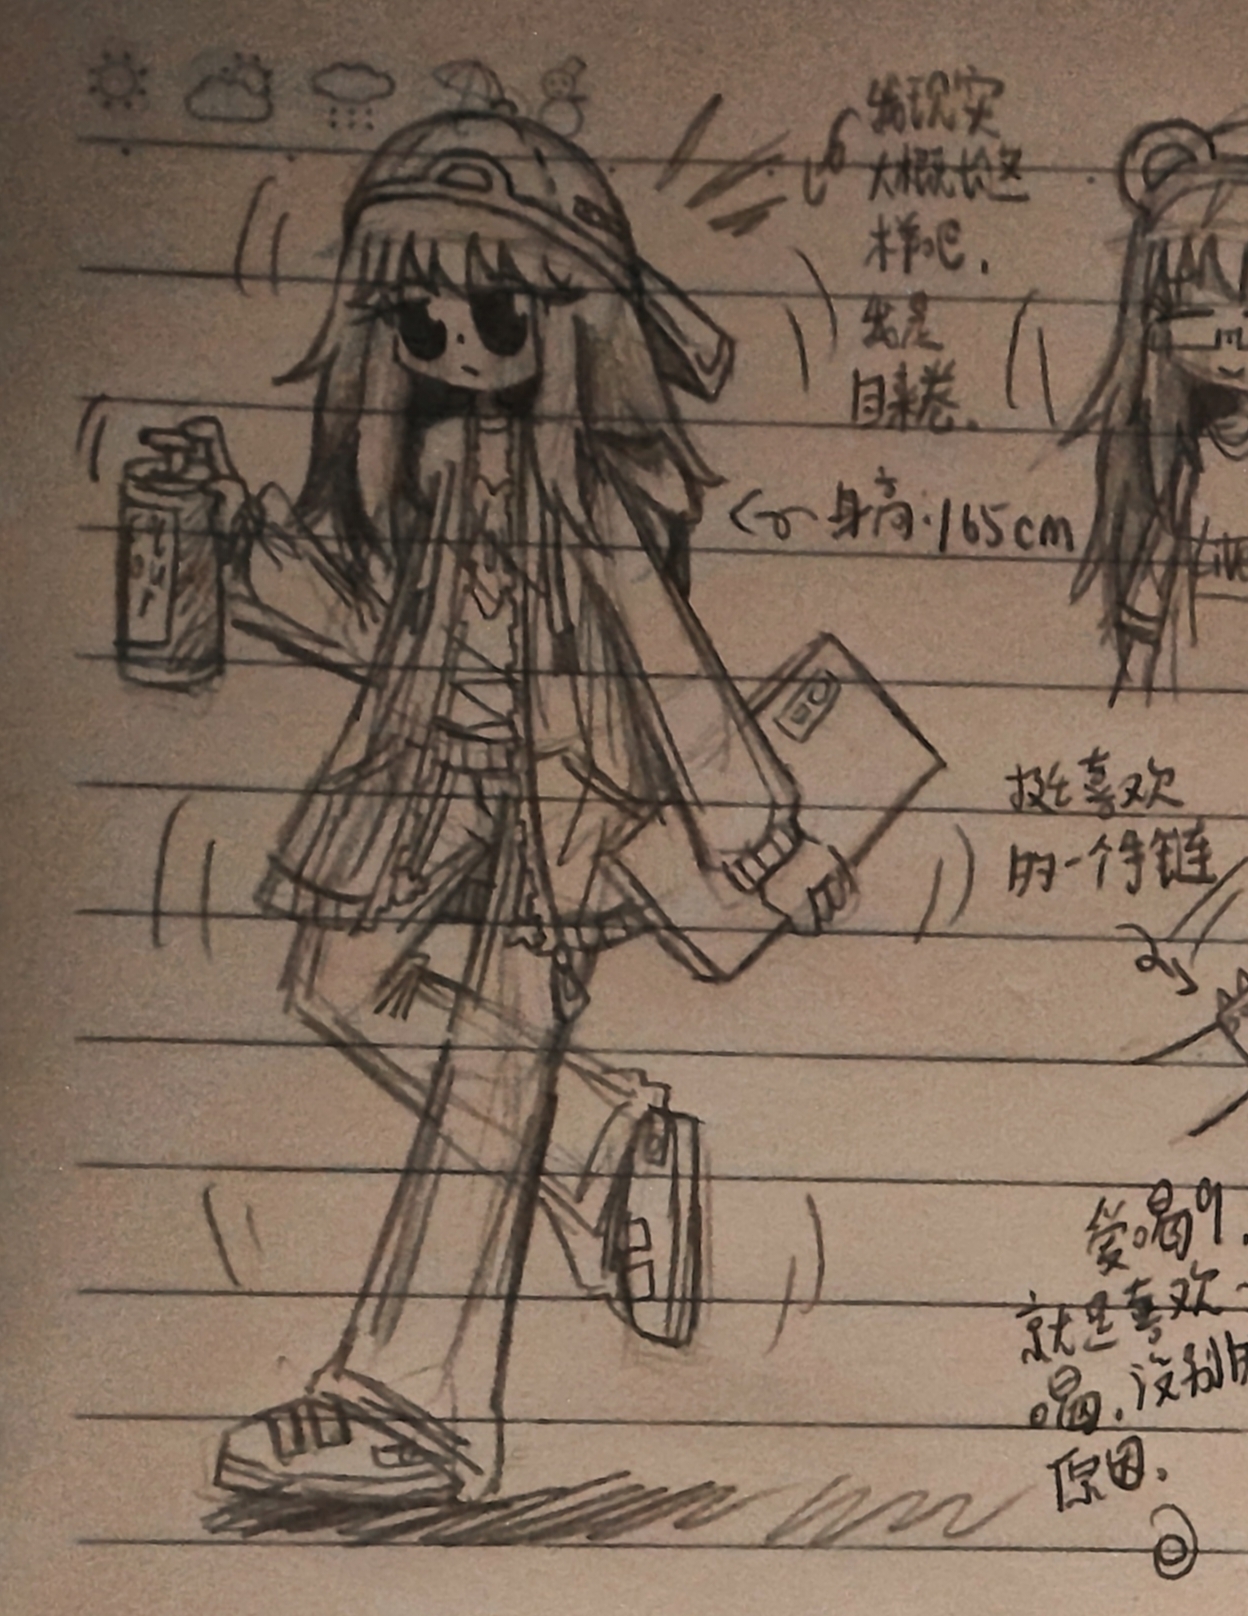 现实
大概长这
样吧.
是
自来卷.
身高:165cm
Live
挺喜欢
的一个手链
爱喝
就是喜欢
喝.没别
原因.